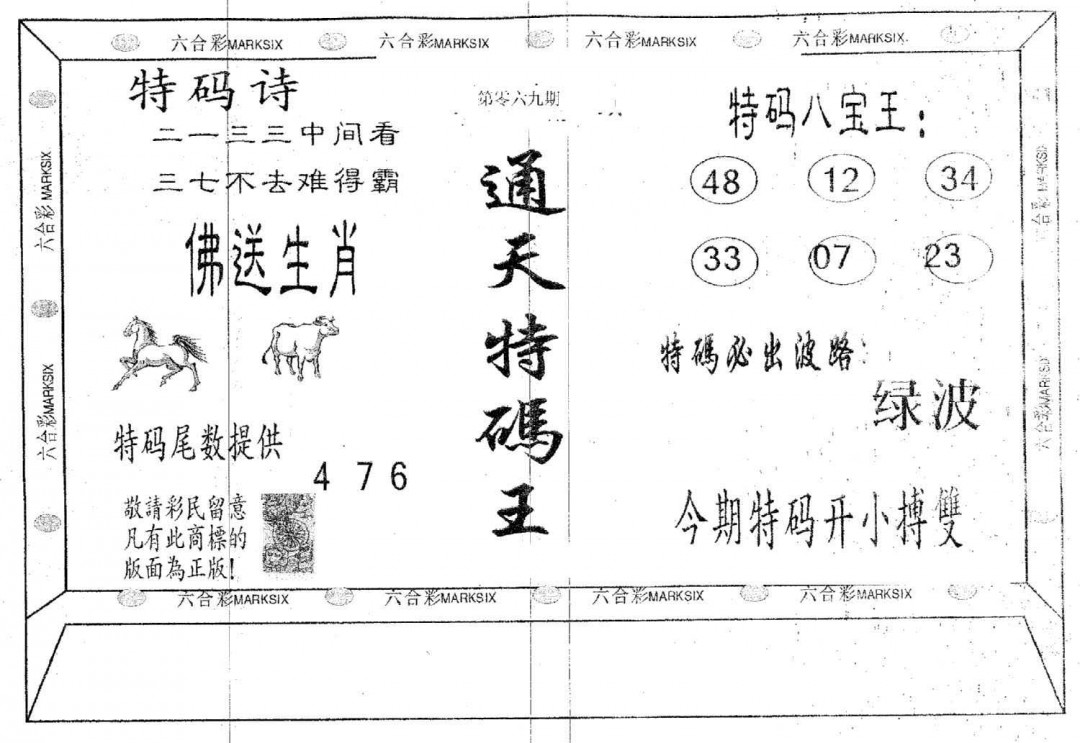 六合彩MARKSIX 六合彩MARKSIX 六合彩MARKSIX 六合彩MARKSIX
特码诗
二一三三中间看
三七不去难得霸
佛送生肖
特码尾数提供
4 7 6
敬請彩民留意
凡有此商標的
版面為正版！
第零六九期
通天特碼王
特码八宝王：
48 12 34
33 07 23
特碼必出波路：
绿波
今期特码开小搏雙
六合彩MARKSIX
六合彩MARKSIX
六合彩MARKSIX
六合彩MARKSIX
六合彩MARKSIX 六合彩MARKSIX 六合彩MARKSIX 六合彩MARKSIX